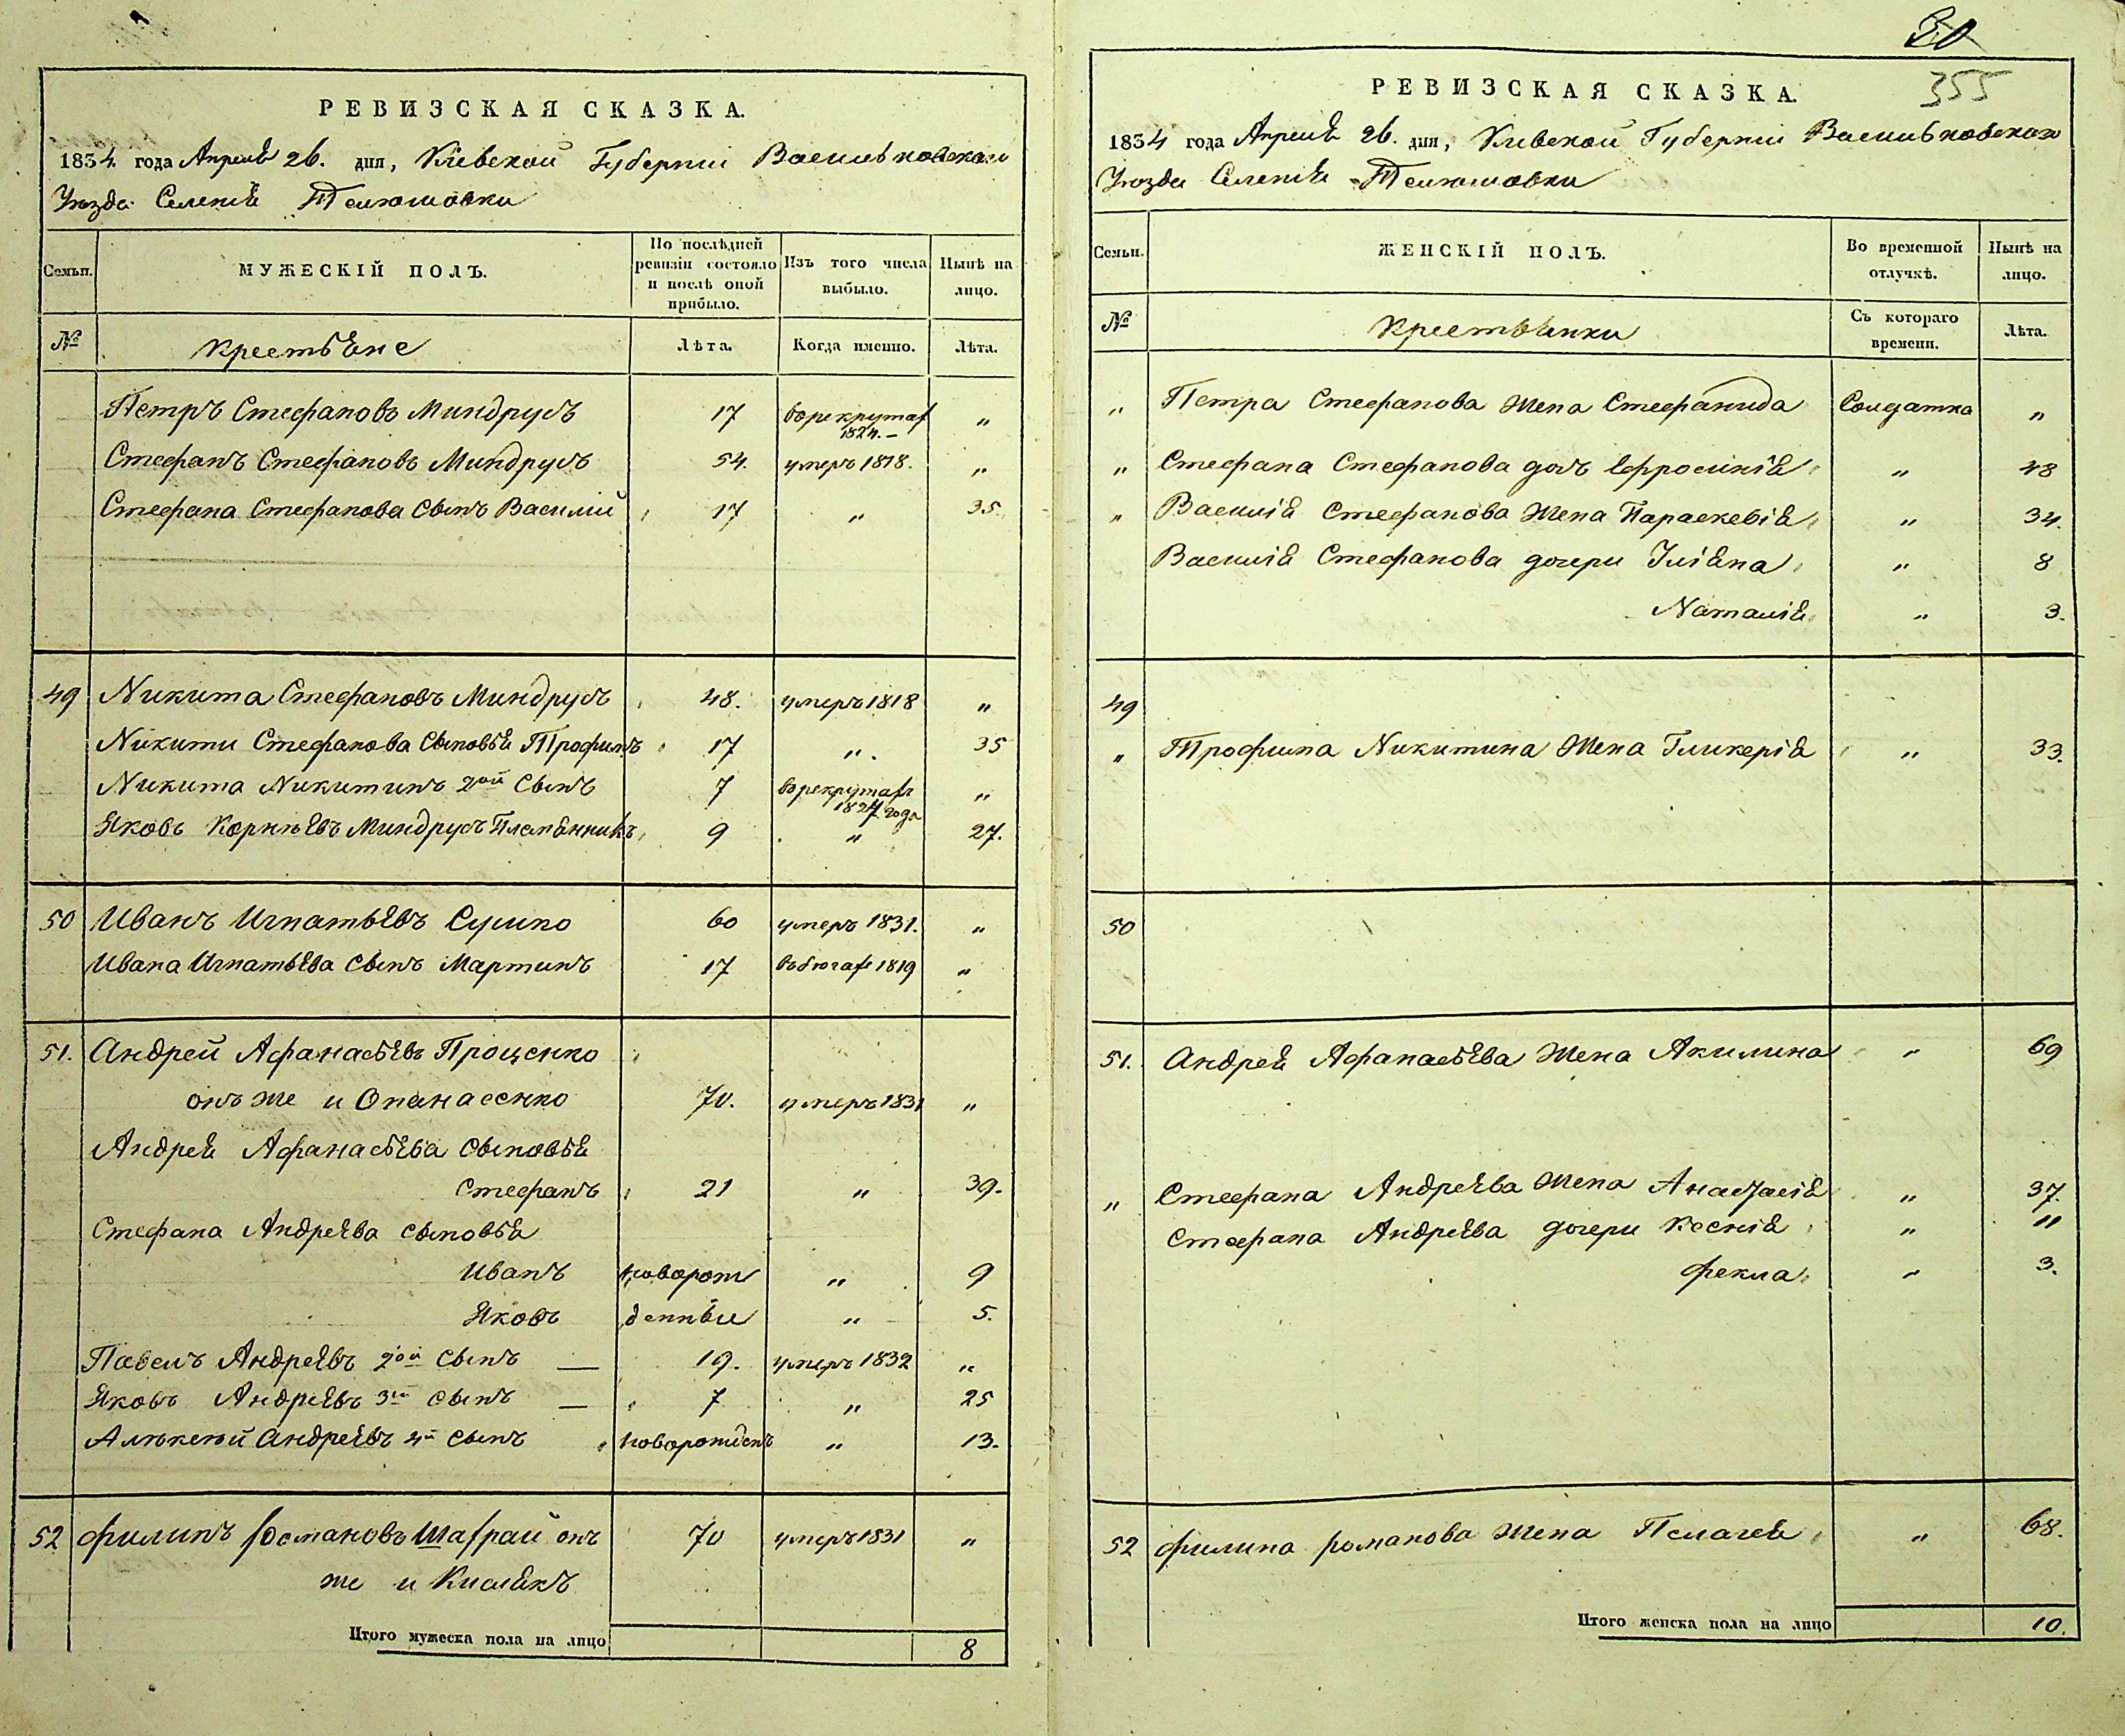 РЕВИЗСКАЯ СКАЗКА.
1834 года Апреля 26. дня, Кіевской Губерніи Васильковскаго
Уѣзда Селенія Телюшовки
Семьи. МУЖЕСКІЙ ПОЛЪ. По послѣдней ревизіи состояло и послѣ оной прибыло. Изъ того числа выбыло. Нынѣ на лицо.
№ Крестьяне Лѣта. Когда именно. Лѣта.
Петръ Стефановъ Миндрусъ 17 врекрутах 1824. „
Стефанъ Стефановъ Миндрусъ 54. умеръ 1818. „
Стефана Стефанова Сынъ Василій 17 „ 35.
49 Никита Стефановъ Миндрусъ 48. умеръ 1818 „
Никиты Стефанова Сыновья Трофимъ 17 „ 35
Никита Никитинъ 2ой Сынъ 7 врекрутахъ 1827 года „
Яковъ Корнѣевъ Миндрусъ Племянникъ 9 „ 27.
50 Иванъ Игнатьевъ Сушко 60 умеръ 1831. „
Ивана Игнатьева Сынъ Мартинъ 17 въ бѣгах 1819 „
51. Андрей Афанасьевъ Проценко
онъ же и Опанасенко 70. умеръ 1831 „
Андрея Афанасьева Сыновья
Стефанъ 21 „ 39.
Стефана Андреева сыновья
Иванъ новорож „ 9
Яковъ денныи „ 5.
Павелъ Андреевъ 2ой сынъ — 19. умеръ 1832 „
Яковъ Андреевъ 3й сынъ — 7 „ 25
Алѣксѣй Андреевъ 4й сынъ новорожденъ „ 13.
52 Филипъ Романовъ Шафрай онъ 70 умеръ 1831 „
же и Кислякъ
Итого мужеска пола на лицо 8
30
355
РЕВИЗСКАЯ СКАЗКА.
1834 года Апреля 26. дня, Кіевской Губерніи Васильковскаго
Уѣзда Селенія Телюшовки
Семьи. ЖЕНСКІЙ ПОЛЪ. Во временной отлучкѣ. Нынѣ на лицо.
№ Крестьянки Съ котораго времени. Лѣта.
„ Петра Стефанова Жена Стефанида Солдатка „
„ Стефана Стефанова дочь Ефросинія „ 48
„ Василія Стефанова Жена Параскевія „ 34.
Василія Стефанова дочери Уліяна „ 8
Наталія „ 3.
49
„ Трофима Никитина Жена Гликерія „ 33.
50
51. Андрея Афанасьева Жена Акилина „ 69
„ Стефана Андреева Жена Анастасія „ 37.
Стефана Андреева дочери Ксенія „ 11
Фекла „ 3.
52 Филипа Романова Жена Пелагея „ 68.
Итого женска пола на лицо 10.